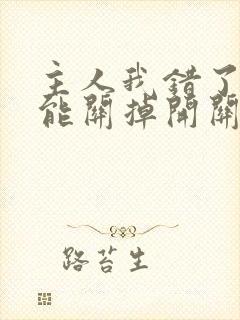 主人我错了
能關掉開關
路苔生